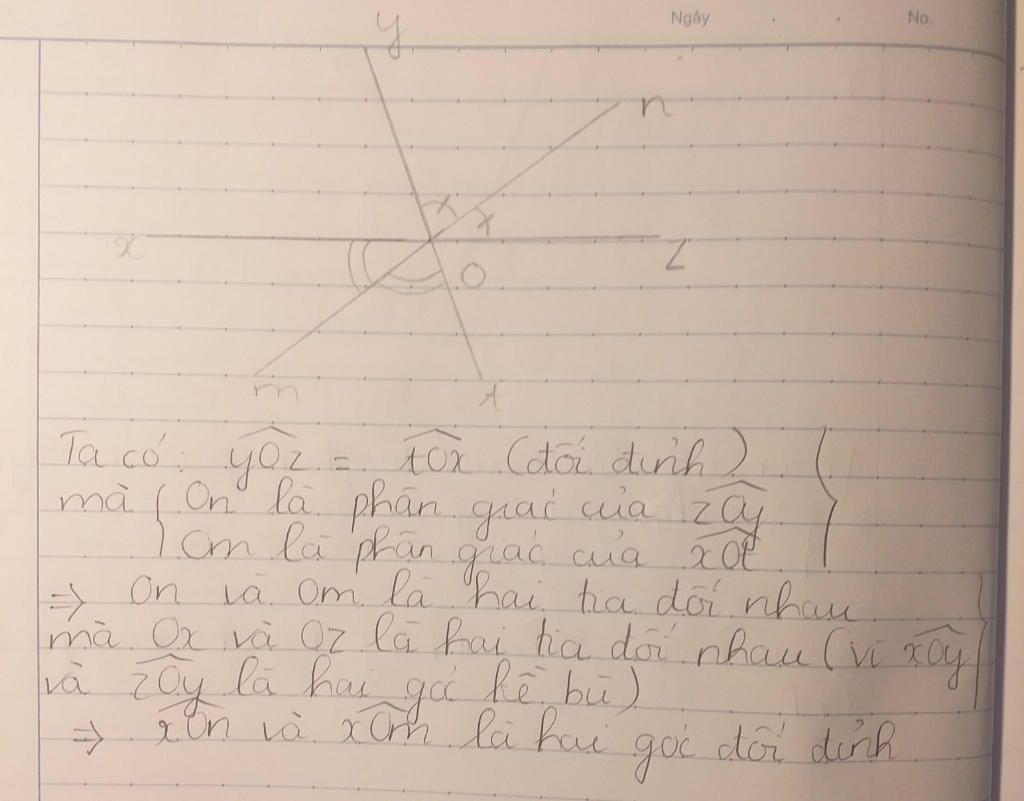 Ngày No.
y
n
x
z
O
m
t
Ta có: yOz = tOx (đối đỉnh)
mà On là phân giác của zOy
Om là phân giác của xOt
⇒ On và Om là hai tia đối nhau
mà Ox và Oz là hai tia đối nhau (vì xOy
và zOy là hai góc kề bù)
⇒ zOn và xOm là hai góc đối đỉnh